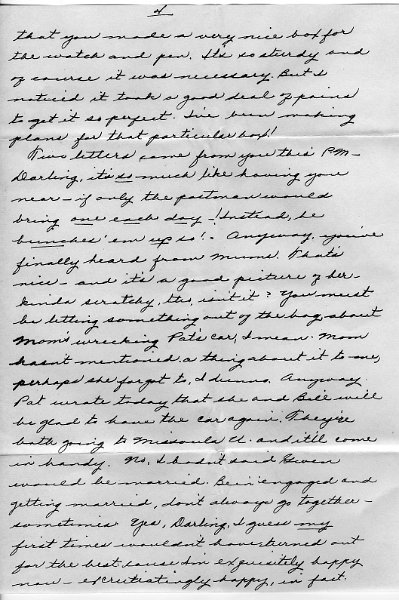 4
that you made a very nice box for
the watch and pen. It's so sturdy and
of course it was necessary. But I
noticed it took a good deal of pains
to get it so perfect. I've been making
plans for that particular box!
Two letters came from you this P.M.
Darling, it's so much like having you
near - if only the postman would
bring one each day! Instead, he
bunches 'em up so! - Anyway, you've
finally heard from Mums. That's
nice - and it's a good picture of her -
kinda scratchy, tho, isn't it? You must
be letting something out of the bag, about
Mom's wrecking Pat's car, I mean. Mom
hasn't mentioned a thing about it to me,
perhaps she forgot to, I dunno. Anyway
Pat wrote today that she and Bill will
be glad to have the car again. They're
both going to Missoula U. and it'll come
in handy. No, I hadn't said Gwen
would be married. Bein' engaged and
getting married, don't always go together -
sometimes. Yes, Darling, I guess my
first times wouldn't have turned out
for the best, cause I'm exquisitely happy
now - excrutiatingly happy, in fact.